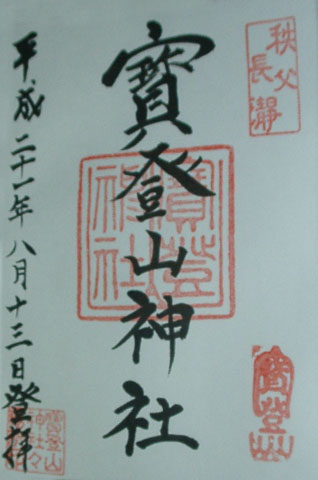 秩父
長瀞
寳登山神社
寳登山神社
寳登山
平成二十一年八月十三日登拝
寳登山
神社々